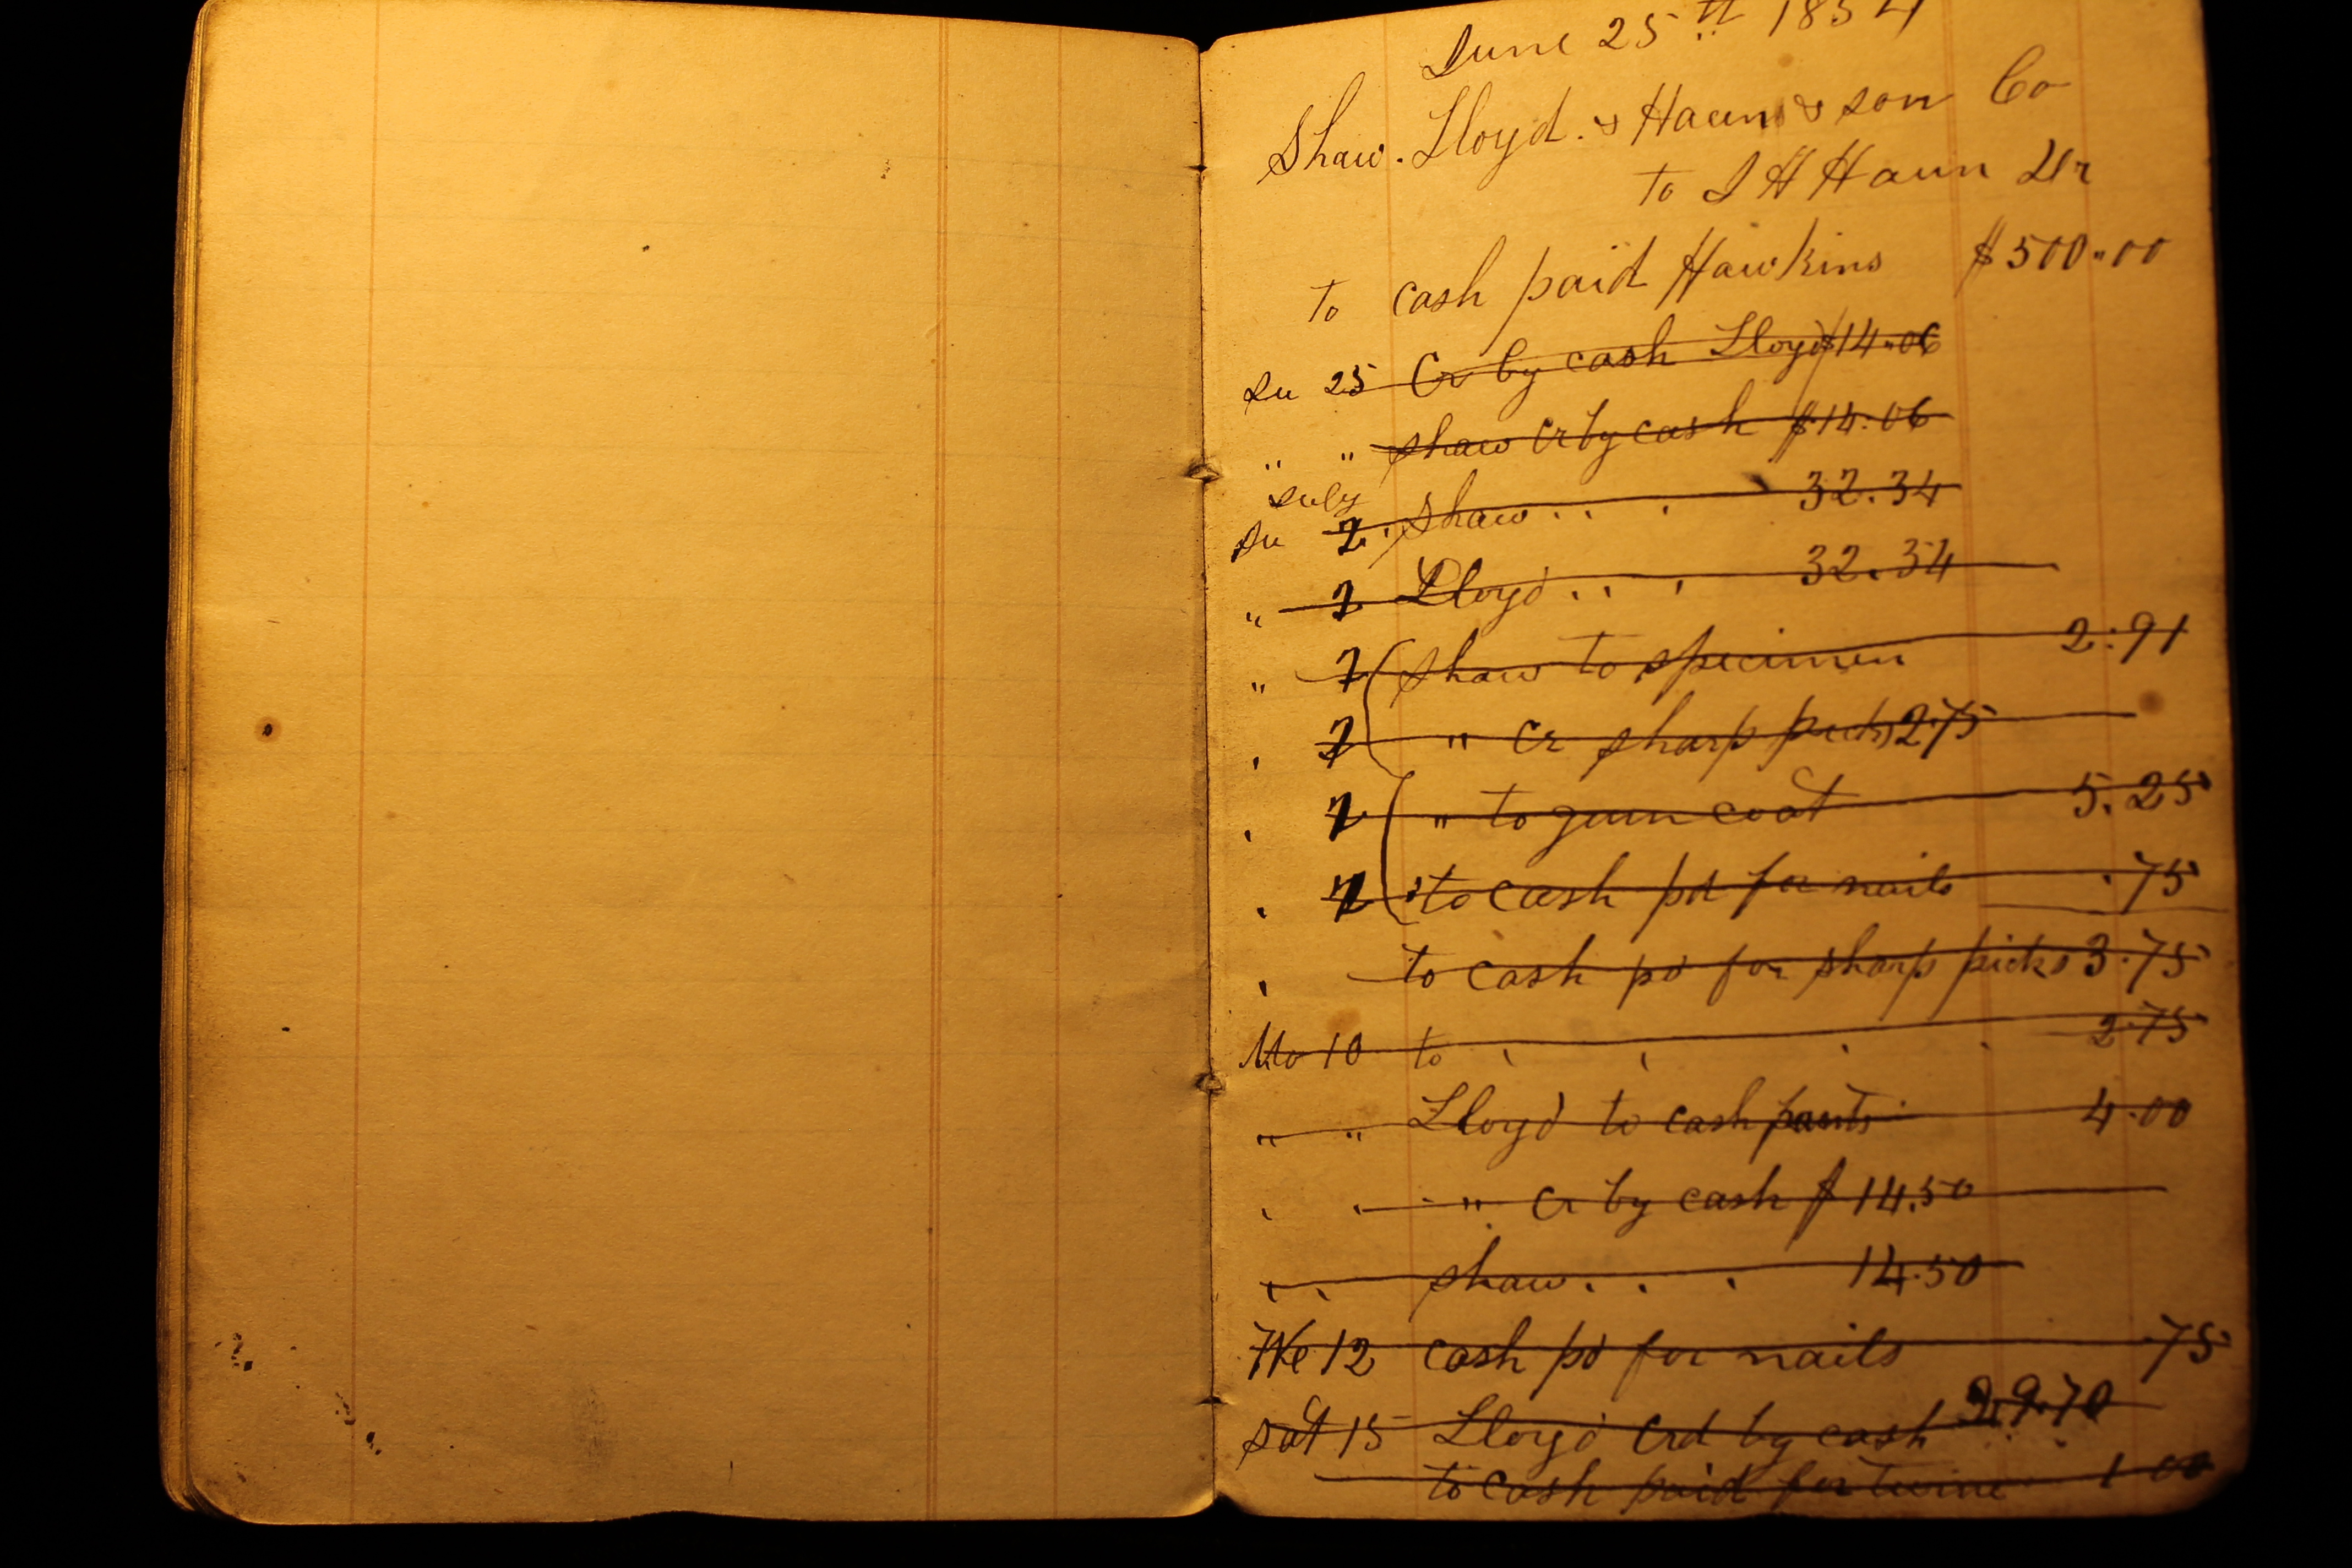 June 25th 1854
Shaw. Lloyd. & Haun & son Co
to J H Haun Dr
to cash paid Hawkins $500.00
Su 25 Cr by cash Lloyd $14.06
" " Shaw Cr by cash $14.06
July
Su 2. Shaw . . . 32.34
" 2 Lloyd . . . 32.34
" 7 Shaw to specimen 2.91
, 7 " Cr sharp picks 2.75
, 7 " to gum coat 5.25
, 7 " to cash pd for nails .75
, to cash pd for sharp picks 3.75
Mo 10 to , , , , 2.75
" " Lloyd to cash pants 4.00
, , " Cr by cash $14.50
, , Shaw . . . 14.50
We 12 cash pd for nails .75
Sat 15 Lloyd Crd by cash
to cash paid for twine 1 00